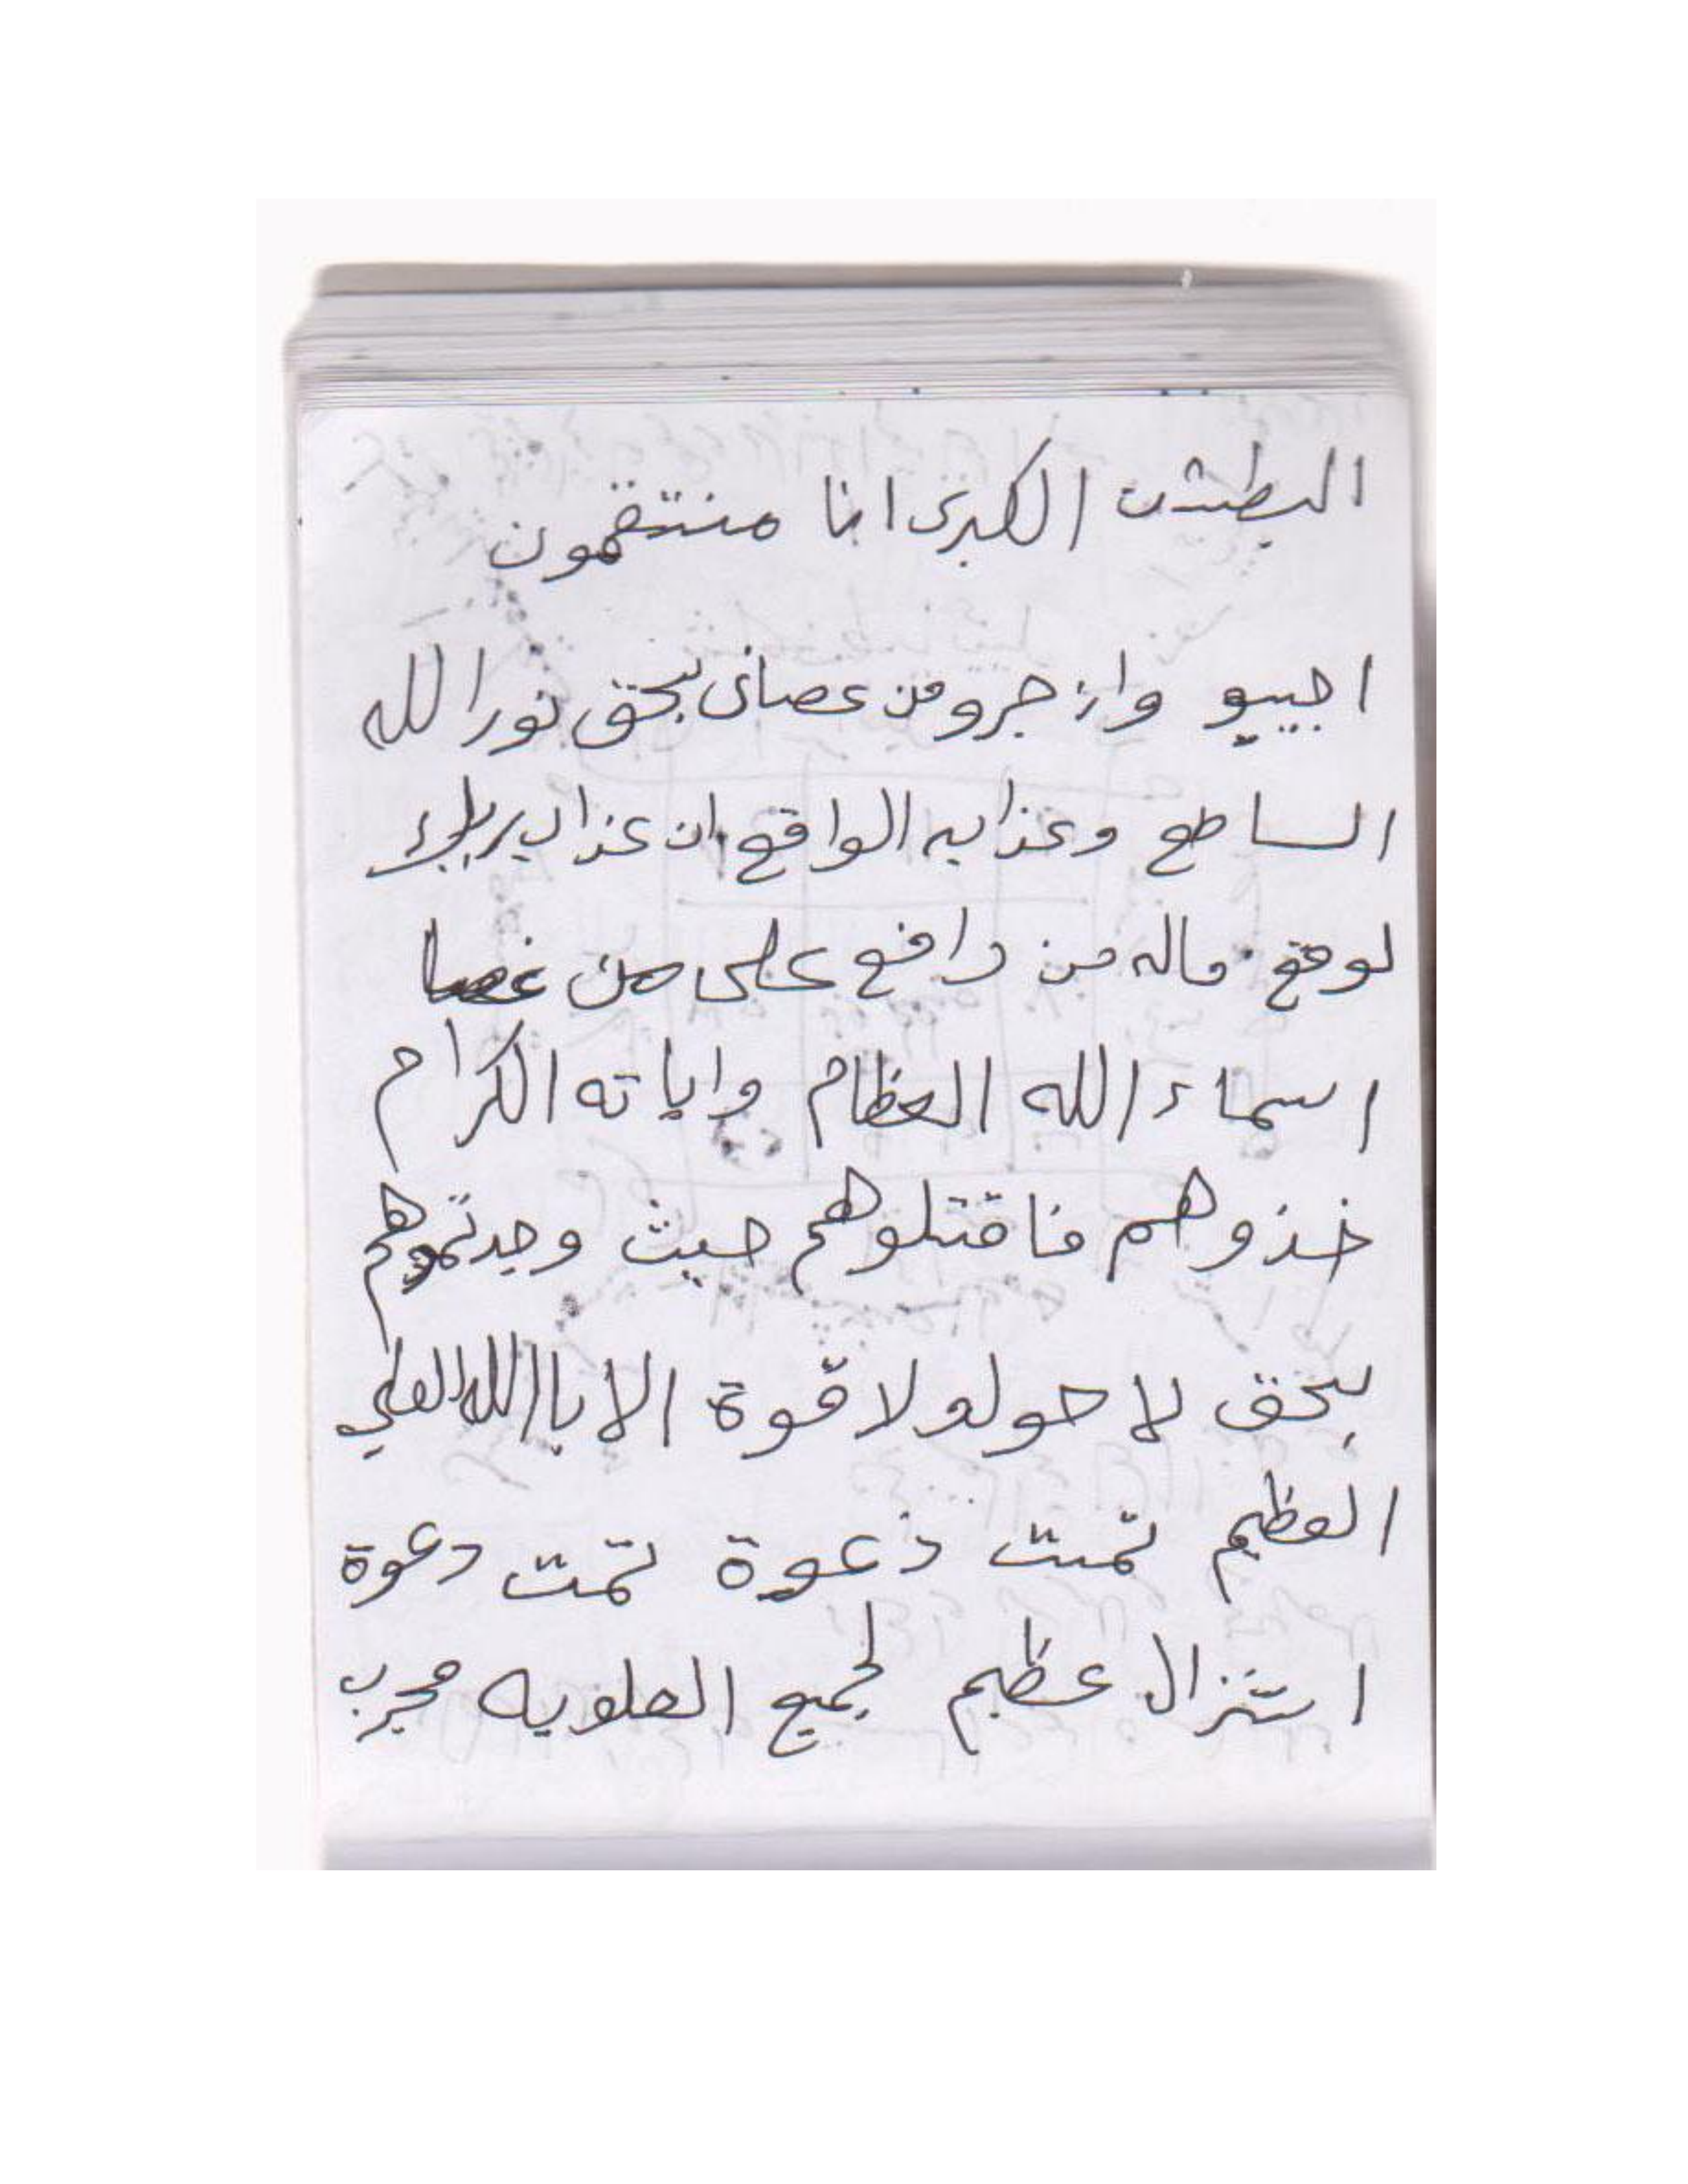 البطشت الكبرى انا منتقمون
اجيبو وازجرو من عصانى بحق نور الله
الساطع وعذابه الواقع ان عذاب ربك
لوقع ماله من دافع على من عصا
اسماء الله العظام واياته الكرام
خذوهم فاقتلوهم حيث وجدتموهم
بحق لا حول ولا قوة الا باالله العلي
العظيم تمت دعوة تمت دعوة
استنزال عظيم لجميع العلويه مجرب